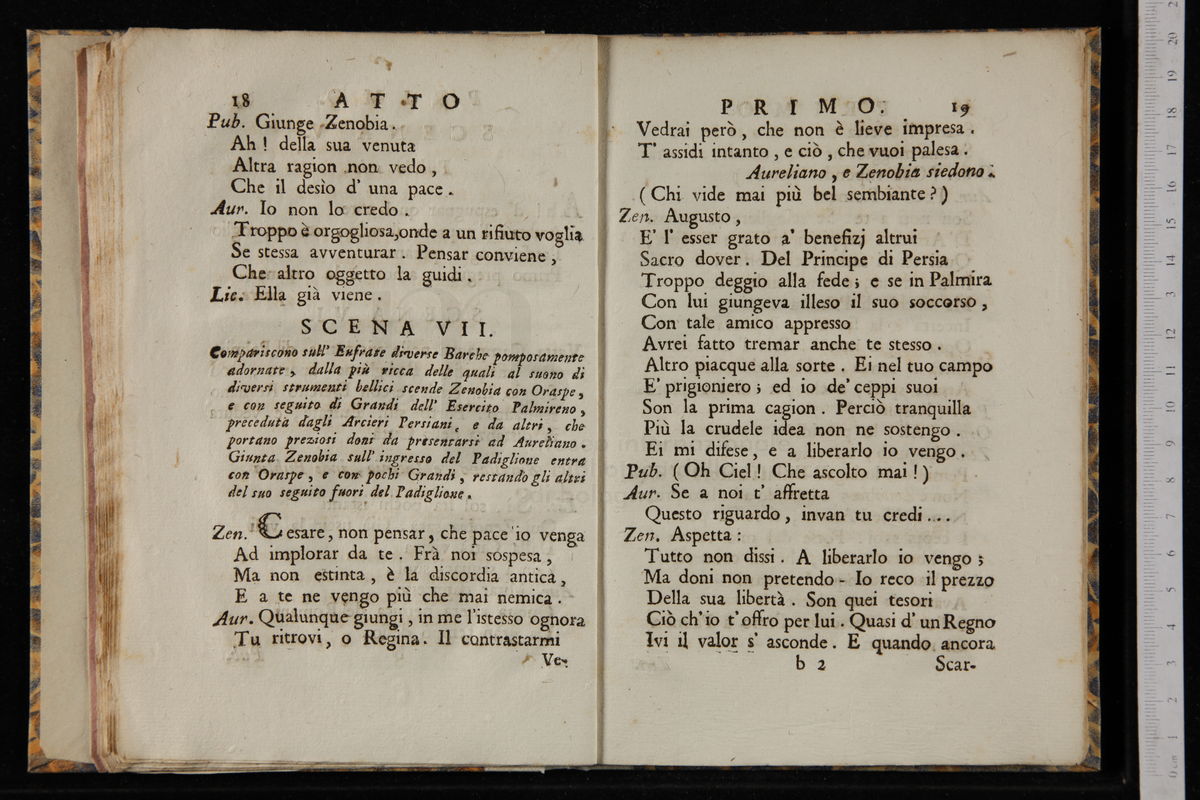 18 ATTO
Pub. Giunge Zenobia.
Ah! della sua venuta
Altra ragion non vedo,
Che il desìo d' una pace.
Aur. Io non lo credo.
Troppo è orgogliosa, onde a un rifiuto voglia
Se stessa avventurar. Pensar conviene,
Che altro oggetto la guidi.
Lic. Ella già viene.
SCENA VII.
Compariscono sull' Eufrate diverse Barche pomposamente
adornate, dalla più ricca delle quali al suono di
diversi strumenti bellici scende Zenobia con Oraspe,
e con seguito di Grandi dell' Esercito Palmireno,
preceduta dagli Arcieri Persiani, e da altri, che
portano preziosi doni da presentarsi ad Aureliano.
Giunta Zenobia sull' ingresso del Padiglione entra
con Oraspe, e con pochi Grandi, restando gli altri
del suo seguito fuori del Padiglione.
Zen. Cesare, non pensar, che pace io venga
Ad implorar da te. Frà noi sospesa,
Ma non estinta, è la discordia antica,
E a te ne vengo più che mai nemica.
Aur. Qualunque giungi, in me l'istesso ognora
Tu ritrovi, o Regina. Il contrastarmi
Ve-
PRIMO. 19
Vedrai però, che non è lieve impresa.
T' assidi intanto, e ciò, che vuoi palesa.
Aureliano, e Zenobia siedono.
(Chi vide mai più bel sembiante?)
Zen. Augusto,
E' l' esser grato a' benefizj altrui
Sacro dover. Del Principe di Persia
Troppo deggio alla fede; e se in Palmira
Con lui giungeva illeso il suo soccorso,
Con tale amico appresso
Avrei fatto tremar anche te stesso.
Altro piacque alla sorte. Ei nel tuo campo
E' prigioniero; ed io de' ceppi suoi
Son la prima cagion. Perciò tranquilla
Più la crudele idea non ne sostengo.
Ei mi difese, e a liberarlo io vengo.
Pub. (Oh Ciel! Che ascolto mai!)
Aur. Se a noi t' affretta
Questo riguardo, invan tu credi...
Zen. Aspetta:
Tutto non dissi. A liberarlo io vengo;
Ma doni non pretendo - Io reco il prezzo
Della sua libertà. Son quei tesori
Ciò ch'io t'offro per lui. Quasi d' un Regno
Ivi il valor s' asconde. E quando ancora
b 2 Scar-